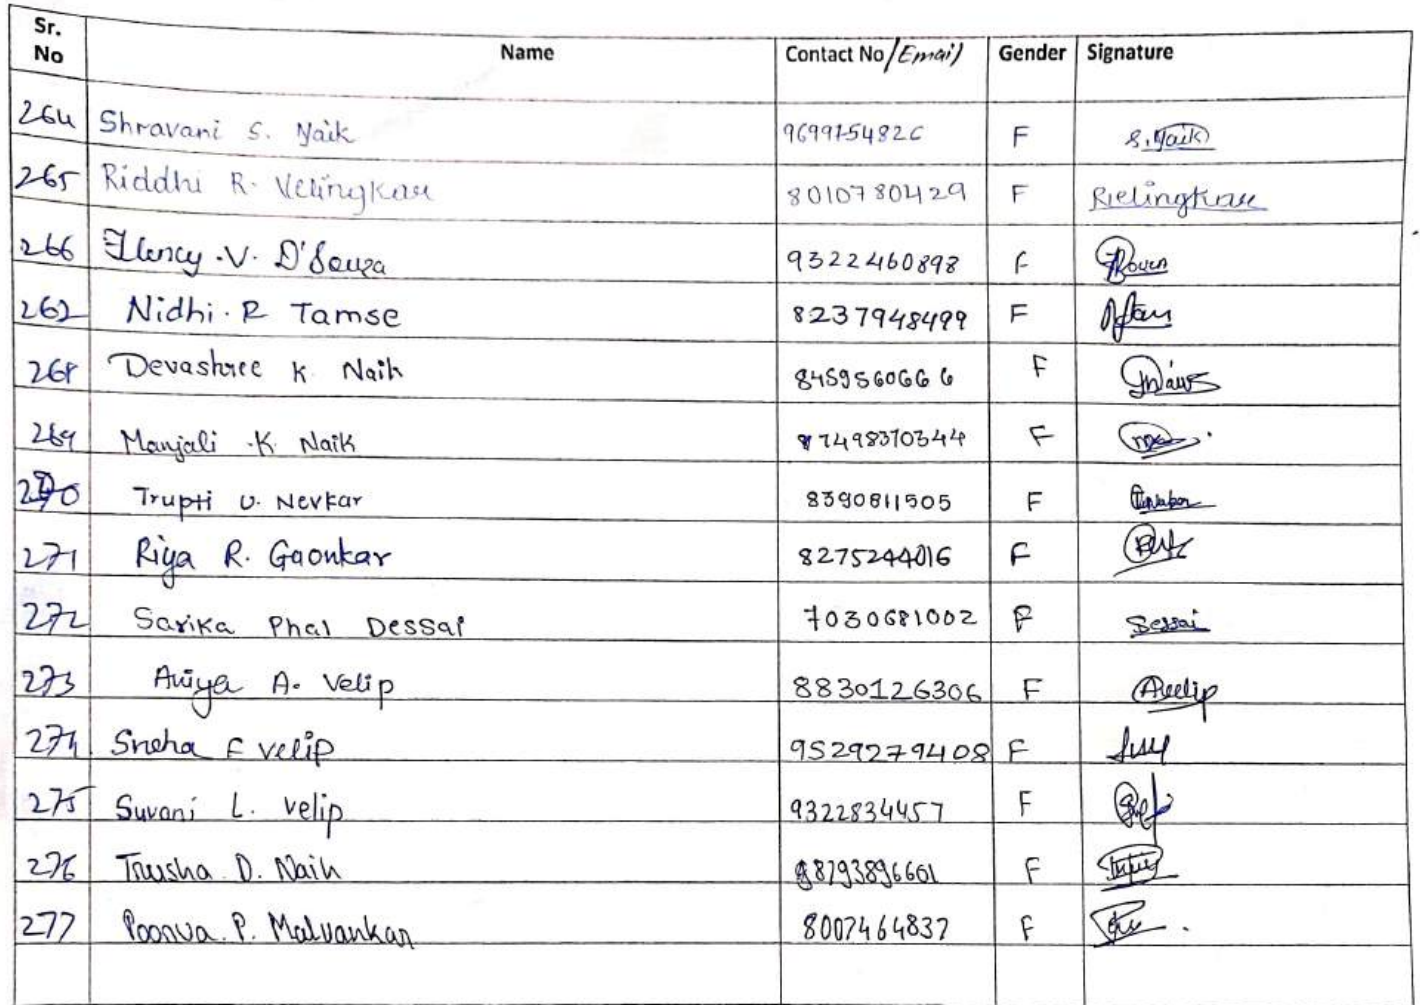 Sr. No Name Contact No/Email) Gender Signature
264 Shravani S. Naik 9699154826 F S. Naik
265 Riddhi R. Velingkar 8010780429 F Rvelingkar
266 Flency .V. D'Souza 9322460898 F
262 Nidhi. R Tamse 8237948499 F
268 Devashree K Naik 8459560666 F
269 Manjali .K. Naik 7498370344 F
270 Trupti U. Nevkar 8390811505 F
271 Riya R. Gaonkar 8275244016 F
272 Sarika Phal Dessai 7030681002 F Dessai
273 A. Velip 8830126306 F Avelip
274 Sneha F velip 9529279408 F
275 Suvani L. velip 9322834457 F
276 Trusha D. Naik 8793896661 F
277 Poorva. P. Malvankar 8007464837 F